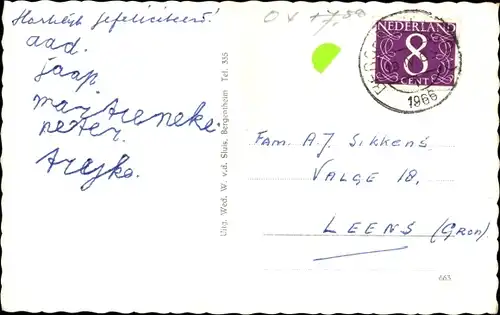 Hartelijk gefeliciteerd!
aad.
jaap
marjareneke.
peter.
0 x +7,50
NEDERLAND
8
CENT
1966
Fam. A.J. Sikkens,
VALGE 18,
LEENS (Gron).
Uitg. Wed. W. v.d. Sluis, Bergentheim Tel. 335
663